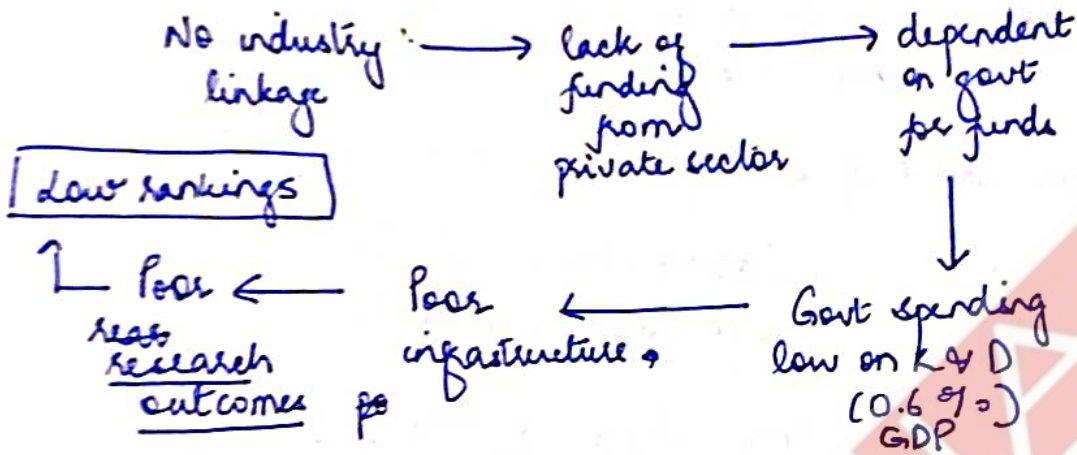 No industry linkage → lack of funding from private sector → dependent on govt for funds
↓
Govt spending low on R & D (0.6 %) GDP
← Poor infrastructure
← Poor research outcomes
Low rankings